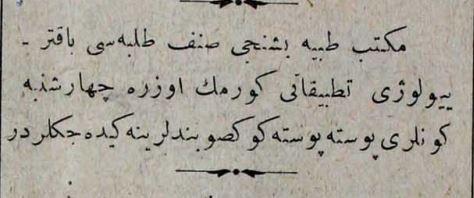 مكتب طبيه بشنجى صنف طلبه‌سى باقتر -
ييولوژى تطبيقاتى كورمك اوزره چهارشنبه
كونلرى پوسته پوسته كوكصو بندلرينه كيده جكلردر